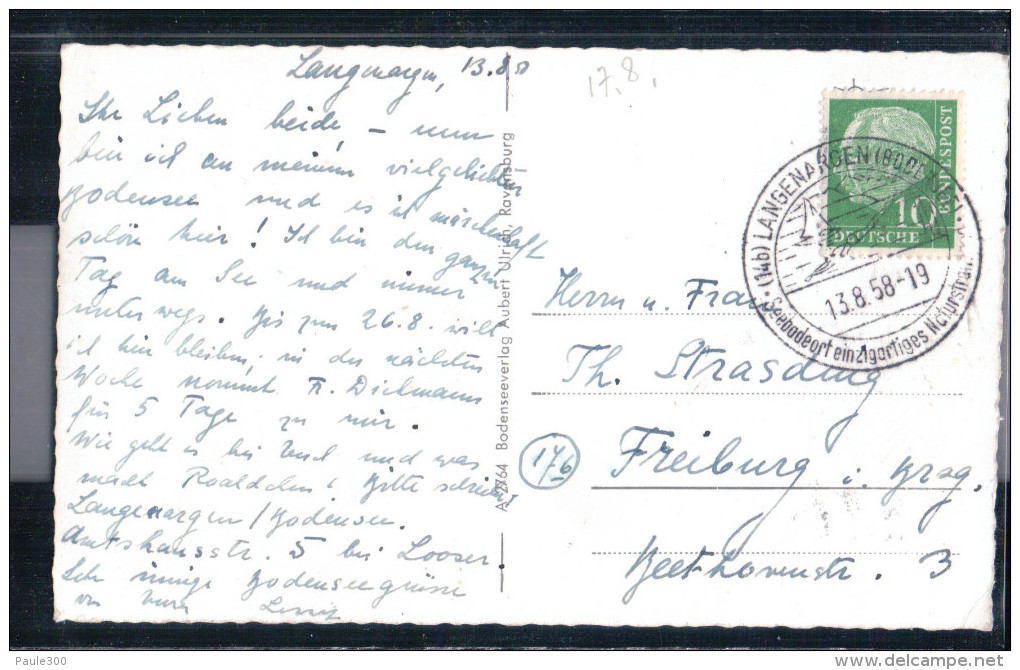 Langenargen, 13.8.58
17.8.
Ihr Lieben beide – nun
bin ich an meinem vielgeliebten
Bodensee und es ist märchenhaft
schön hier! Ich bin den ganzen
Tag am See und immer
unterwegs. Bis zum 26.8. will
ich hier bleiben, in der nächsten
Woche kommt Fr. Dielmann
für 5 Tage zu mir.
Wie geht es bei Euch und was
macht Roaldchen? Bitte schreiben
Langenargen/Bodensee.
Amtshausstr. 5 bei Looser
Sehr innige Bodenseegrüsse
von Eurer
A 7764 Bodenseeverlag Aubert Ulrich, Ravensburg
DEUTSCHE BUNDESPOST
10
(14b) LANGENARGEN (BODENSEE)
13.8.58-19
Seebadeort einzigartiges Naturstrandbad
Herrn u. Frau
Th. Strasding
17b
Freiburg i. Brsg.
Beethovenstr. 3
Paule300
delcampe.net